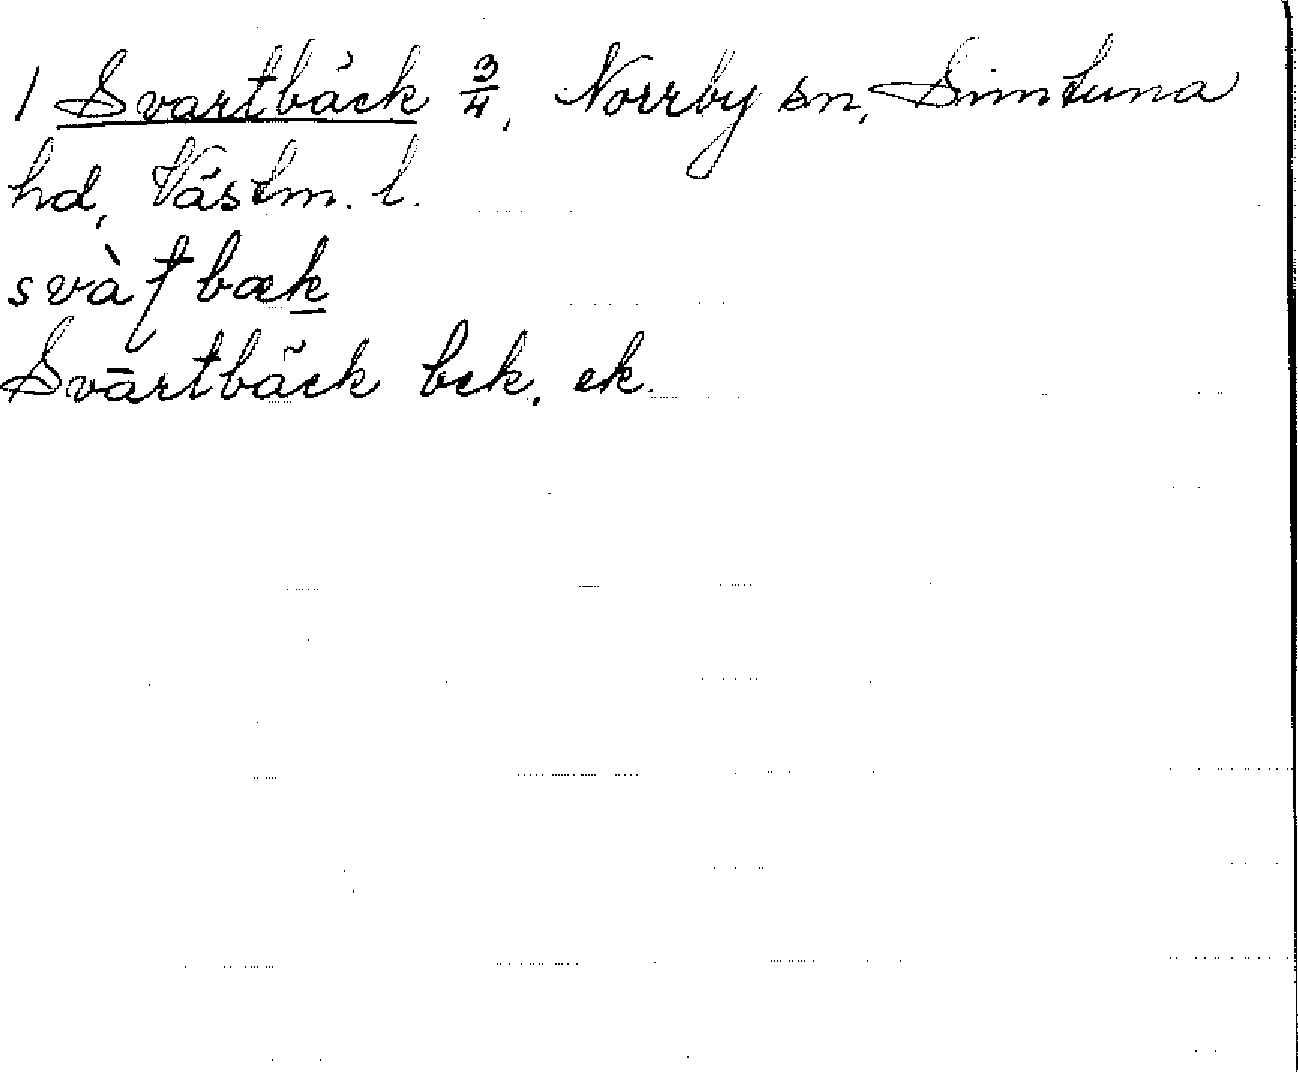 1 Svartbäck 3/4, Norrby sn, Simtuna
hd, Västm. l.
svàƭbæk
Svārtbäck bek. ek.